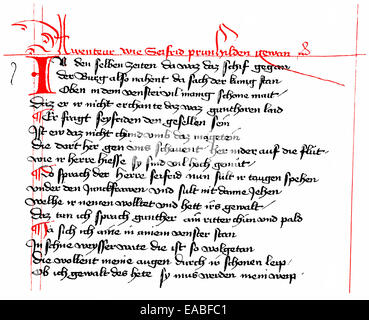 Awenteur wie Seifrid prunhilden gewan
In den selben zeiten da waz daz schif gegan
der Burg also nahent da sach der kunig stan
Oben in dem venster vil manig schone mait
Daz er ir nicht erchante daz waz gunthoren laid
Er fragt seyfriden den gesellen sein
Ist ew daz nicht chund umb daz magetein
die dort her gen uns schauent her nider auf die flut
wie ir herre hiesse sy sind vil hoch gemut
Do sprach der herre seifrid nun sult ir taugen spehen
under den junckfrawen und sult mit dann jehen
welhe ir nemen wolltet und hett irs gewalt
daz tun ich sprach gunther ain ritter chün und pald
So sich ich aine in ainem venster stan
In schne weysser waite die ist so wolgetan
die wellent meine augen durch ir schonen leip
Ob ich gewalt des hete sy mus werden mein weip
alamy stock photo
EABFC1
www.alamy.com